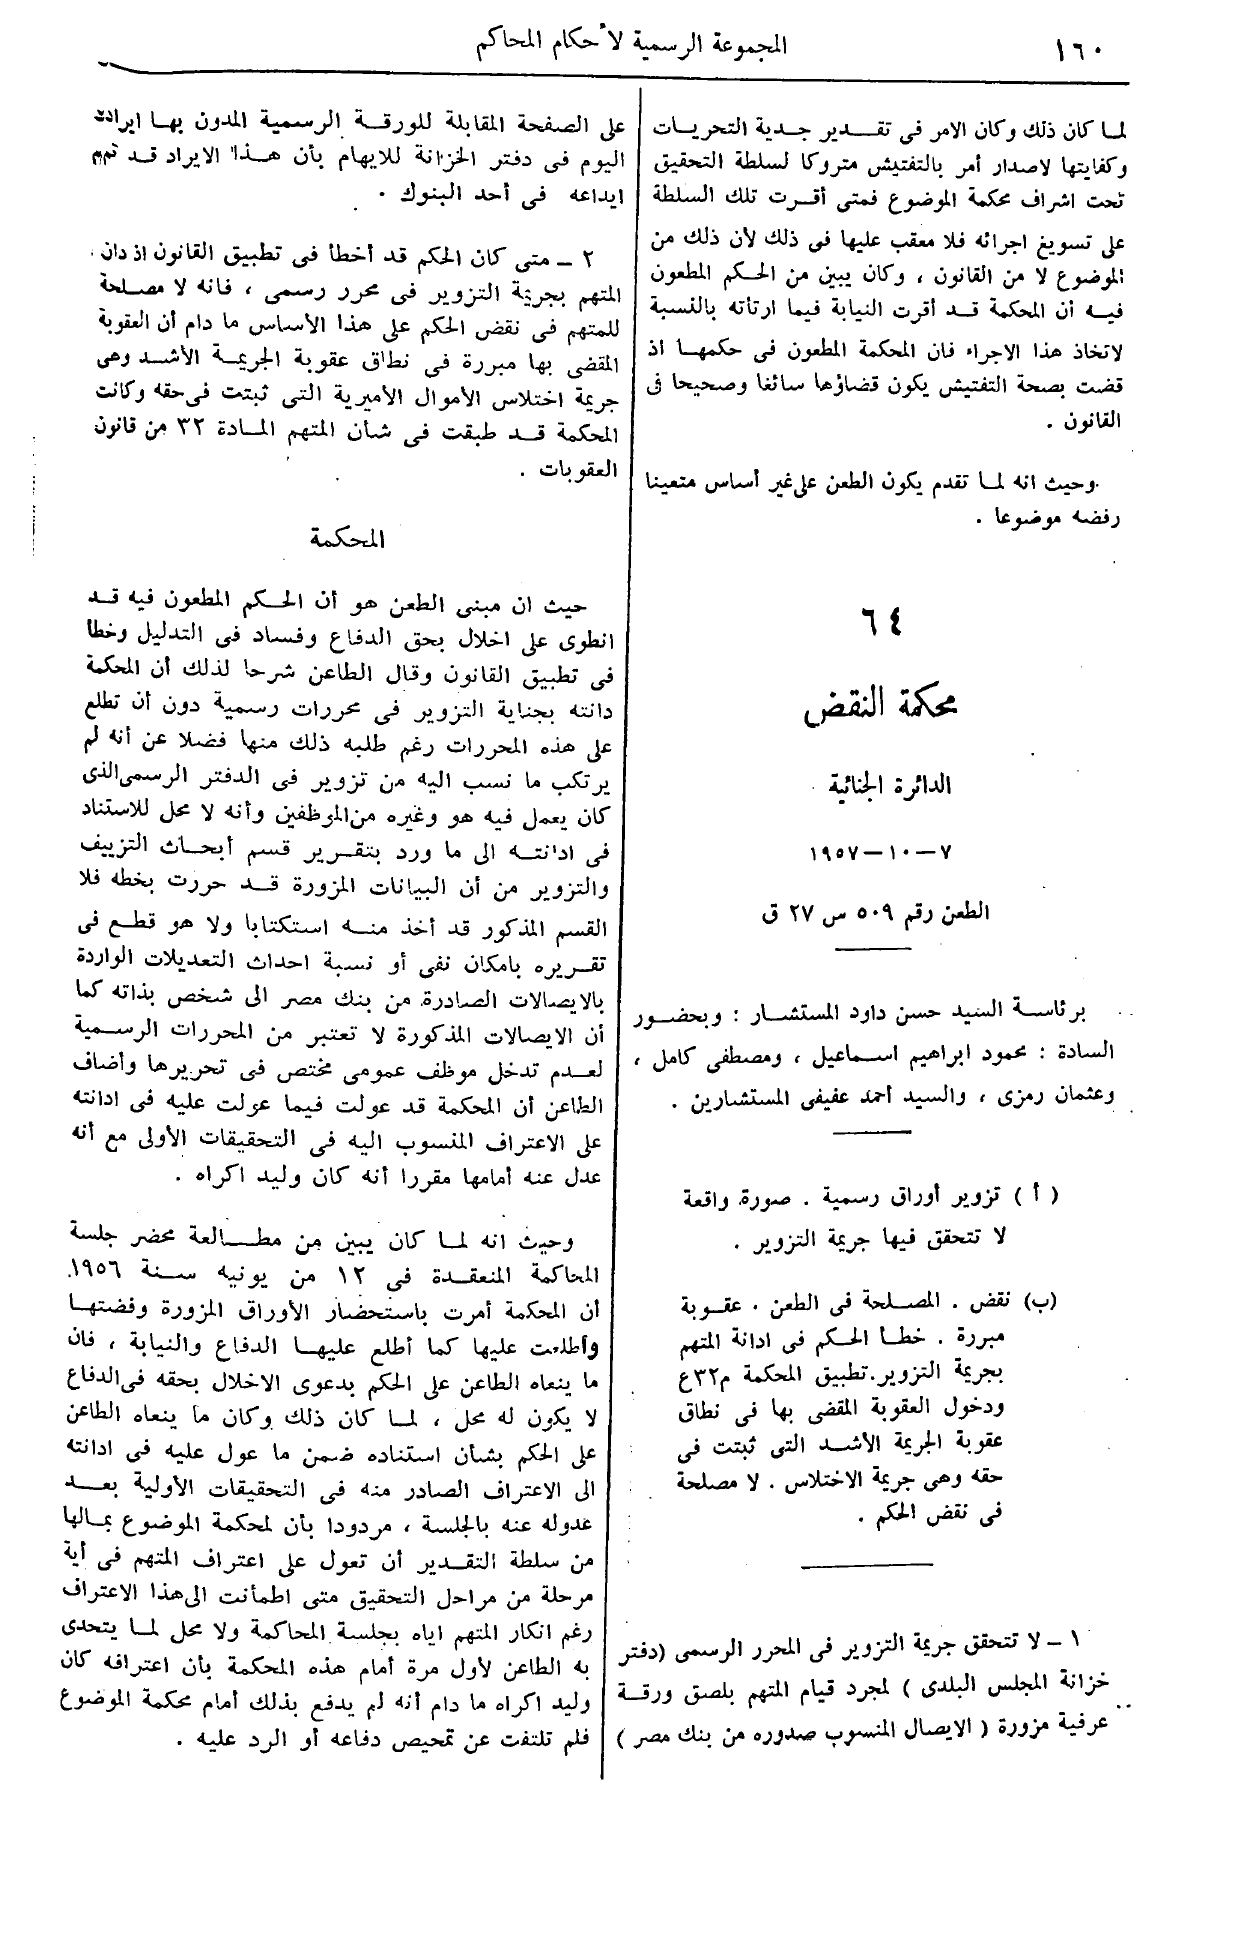 ١٦٠
المجموعة الرسمية لأحكام المحاكم
لما كان ذلك وكان الامر فى تقدير جدية التحريات
وكفايتها لاصدار أمر بالتفتيش متروكا لسلطة التحقيق
تحت اشراف محكمة الموضوع فمتى أقرت تلك السلطة
على تسويغ اجرائه فلا معقب عليها فى ذلك لأن ذلك من
الموضوع لا من القانون ، وكان يبين من الحكم المطعون
فيه أن المحكمة قد أقرت النيابة فيما ارتأته بالنسبة
لاتخاذ هذا الاجراء فان المحكمة المطعون فى حكمها اذ
قضت بصحة التفتيش يكون قضاؤها سائغا وصحيحا فى
القانون .
وحيث انه لما تقدم يكون الطعن على غير أساس متعينا
رفضه موضوعا .
٦٤
محكمة النقض
الدائرة الجنائية
٧-١٠-١٩٥٧
الطعن رقم ٥٠٩ س ٢٧ ق
برئاسة السيد حسن داود المستشار : وبحضور
السادة : محمود ابراهيم اسماعيل ، ومصطفى كامل ،
وعثمان رمزى ، والسيد أحمد عفيفى المستشارين .
( أ ) تزوير أوراق رسمية . صورة واقعة
لا تتحقق فيها جريمة التزوير .
(ب) نقض . المصلحة فى الطعن . عقوبة
مبررة . خطأ الحكم فى ادانة المتهم
بجريمة التزوير. تطبيق المحكمة م٣٢ع
ودخول العقوبة المقضى بها فى نطاق
عقوبة الجريمة الأشد التى ثبتت فى
حقه وهى جريمة الاختلاس . لا مصلحة
فى نقض الحكم .
١ - لا تتحقق جريمة التزوير فى المحرر الرسمى (دفتر
خزانة المجلس البلدى ) لمجرد قيام المتهم بلصق ورقة
عرفية مزورة ( الايصال المنسوب صدوره من بنك مصر )
على الصفحة المقابلة للورقة الرسمية المدون بها ايرادت
اليوم فى دفتر الخزانة للايهام بأن هذا الايراد قد تم
ايداعه فى أحد البنوك .
٢ - متى كان الحكم قد أخطأ فى تطبيق القانون اذ دان
المتهم بجريمة التزوير فى محرر رسمى ، فانه لا مصلحة
للمتهم فى نقض الحكم على هذا الأساس ما دام أن العقوبة
المقضى بها مبررة فى نطاق عقوبة الجريمة الأشد وهى
جريمة اختلاس الأموال الأميرية التى ثبتت فى حقه وكانت
المحكمة قد طبقت فى شأن المتهم المادة ٣٢ من قانون
العقوبات .
المحكمة
حيث ان مبنى الطعن هو أن الحكم المطعون فيه قد
انطوى على اخلال بحق الدفاع وفساد فى التدليل وخطأ
فى تطبيق القانون وقال الطاعن شرحا لذلك أن المحكمة
دانته بجناية التزوير فى محررات رسمية دون أن تطلع
على هذه المحررات رغم طلبه ذلك منها فضلا عن أنه لم
يرتكب ما نسب اليه من تزوير فى الدفتر الرسمى الذى
كان يعمل فيه هو وغيره من الموظفين وأنه لا محل للاستناد
فى ادانته الى ما ورد بتقرير قسم أبحاث التزييف
والتزوير من أن البيانات المزورة قد حررت بخطه فلا
القسم المذكور قد أخذ منه استكتابا ولا هو قطع فى
تقريره بامكان نفى أو نسبة احداث التعديلات الواردة
بالايصالات الصادرة من بنك مصر الى شخص بذاته كما
أن الايصالات المذكورة لا تعتبر من المحررات الرسمية
لعدم تدخل موظف عمومى مختص فى تحريرها وأضاف
الطاعن أن المحكمة قد عولت فيما عولت عليه فى ادانته
على الاعتراف المنسوب اليه فى التحقيقات الأولى مع أنه
عدل عنه أمامها مقررا أنه كان وليد اكراه .
وحيث انه لما كان يبين من مطالعة محضر جلسة
المحاكمة المنعقدة فى ١٢ من يونيه سنة ١٩٥٦
أن المحكمة أمرت باستحضار الأوراق المزورة وفضتها
وأطلعت عليها كما أطلع عليها الدفاع والنيابة ، فان
ما ينعاه الطاعن على الحكم بدعوى الاخلال بحقه فى الدفاع
لا يكون له محل ، لما كان ذلك وكان ما ينعاه الطاعن
على الحكم بشأن استناده ضمن ما عول عليه فى ادانته
الى الاعتراف الصادر منه فى التحقيقات الأولية بعد
عدوله عنه بالجلسة ، مردودا بأن لمحكمة الموضوع بمالها
من سلطة التقدير أن تعول على اعتراف المتهم فى أية
مرحلة من مراحل التحقيق متى اطمأنت الى هذا الاعتراف
رغم انكار المتهم اياه بجلسة المحاكمة ولا محل لما يتحدى
به الطاعن لأول مرة أمام هذه المحكمة بأن اعترافه كان
وليد اكراه ما دام أنه لم يدفع بذلك أمام محكمة الموضوع
فلم تلتفت عن تمحيص دفاعه أو الرد عليه .